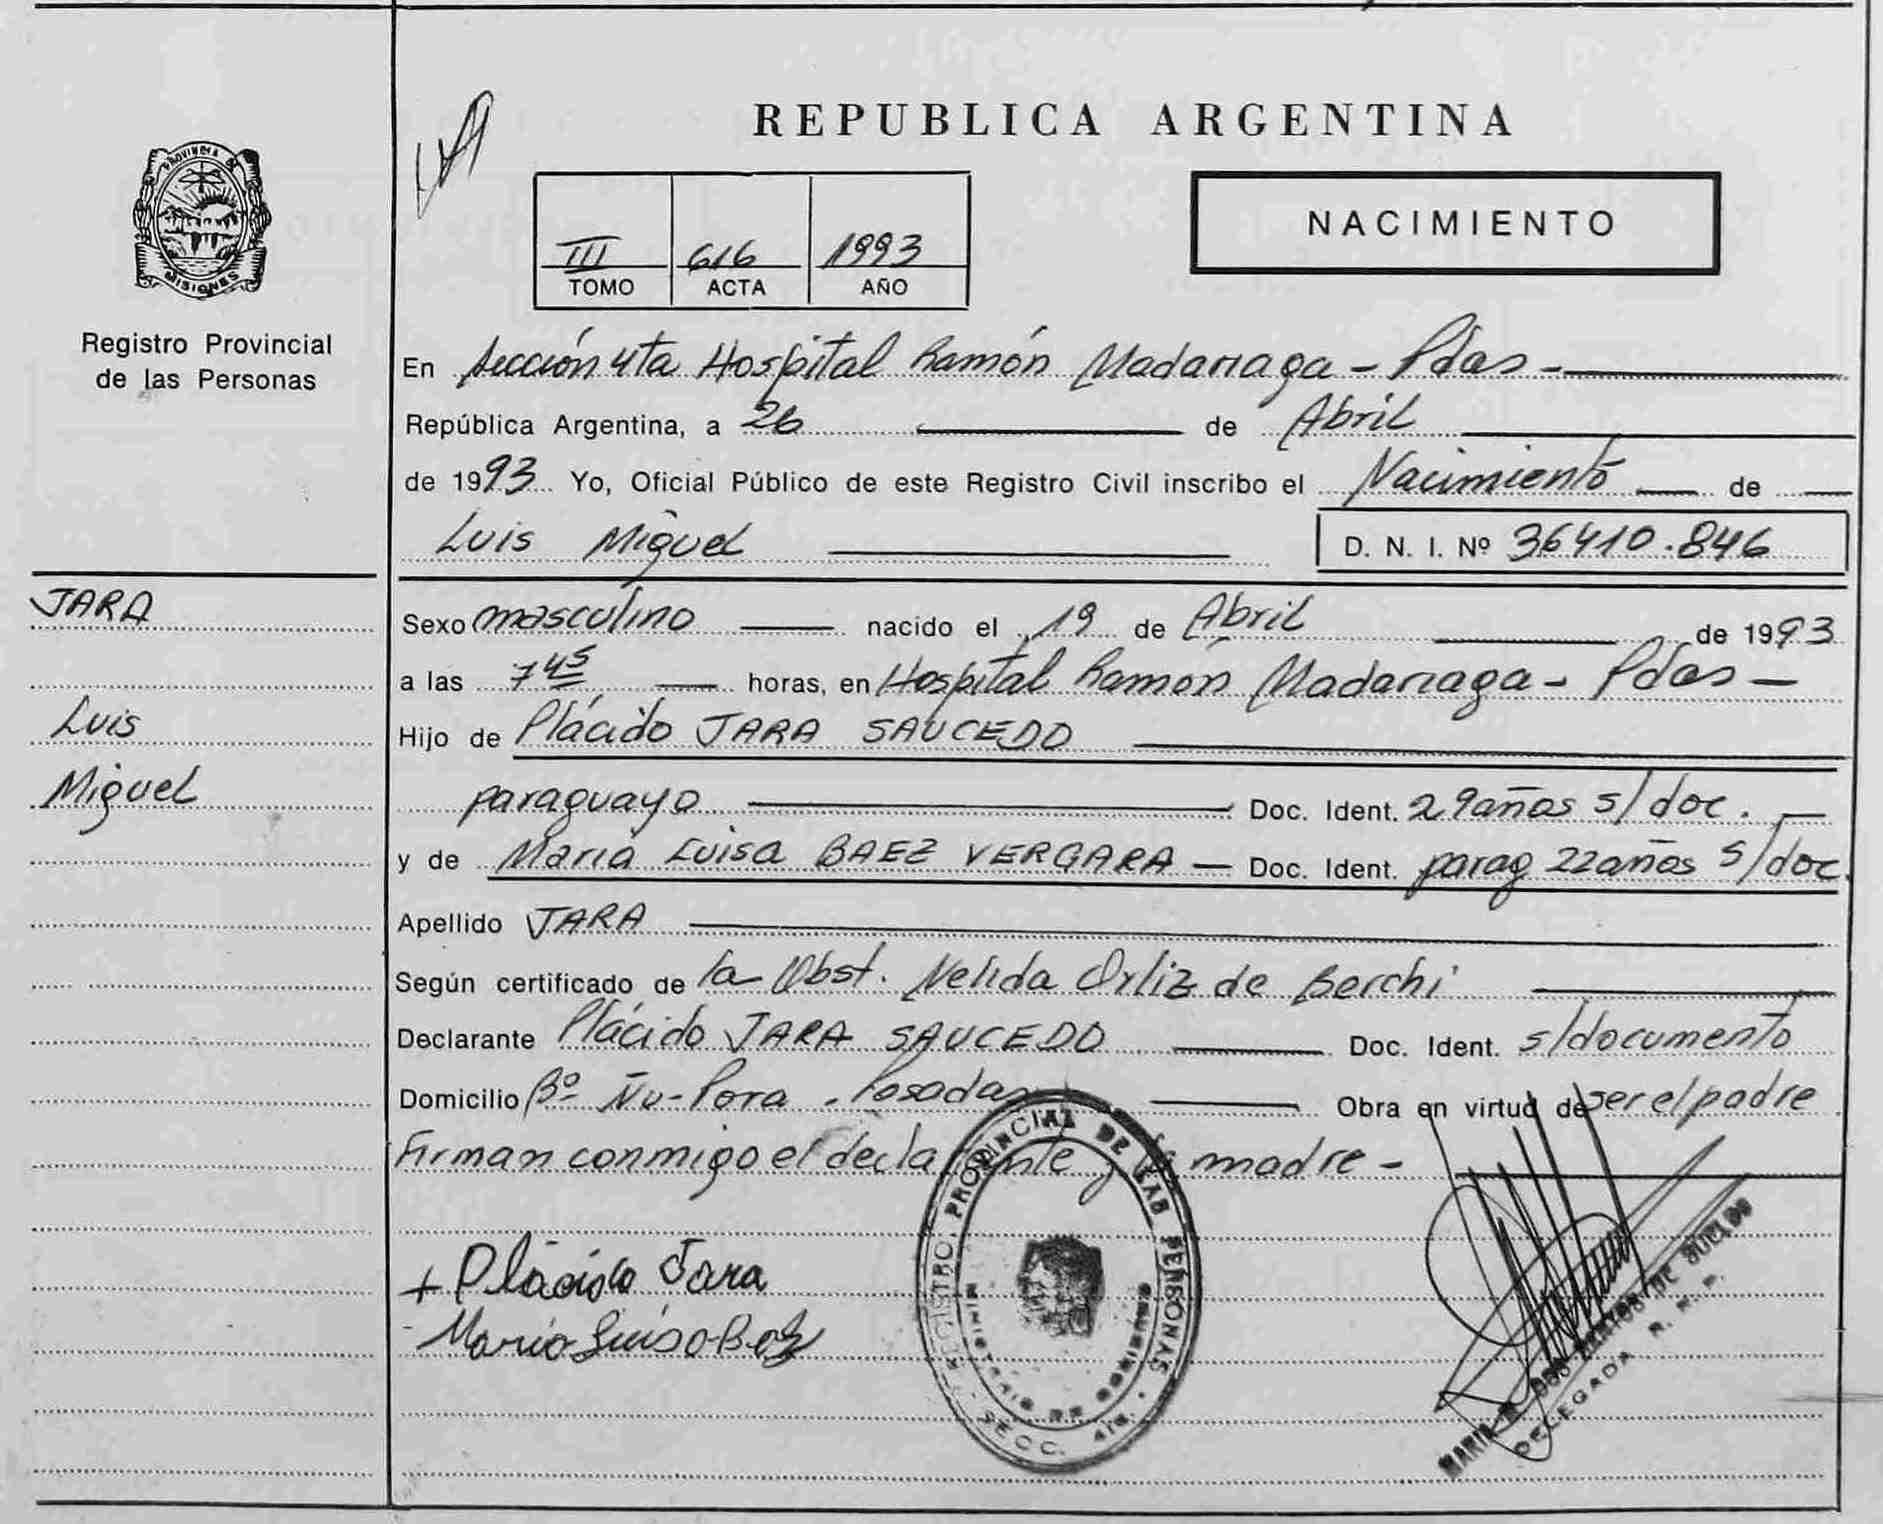 REPUBLICA ARGENTINA
PROVINCIA DE
MISIONES
Registro Provincial
de las Personas
NACIMIENTO
III 616 1993
TOMO ACTA AÑO
En Sección 4ta Hospital Ramón Madariaga - Pdas -
República Argentina, a 26 de Abril
de 1993 Yo, Oficial Público de este Registro Civil inscribo el Nacimiento de
Luis Miguel D. N. I. Nº 36410.846
JARA
Luis
Miguel
Sexo masculino nacido el 19 de Abril de 1993
a las 7 45 horas, en Hospital Ramón Madariaga - Pdas -
Hijo de Plácido JARA SAUCEDO
paraguayo Doc. Ident. 29 años s/doc.
y de María Luisa BAEZ VERGARA - Doc. Ident. parag 22 años s/doc.
Apellido JARA
Según certificado de la Obst. Nelida Ortiz de Berchi
Declarante Plácido JARA SAUCEDO Doc. Ident. s/documento
Domicilio Bº Ñu-Pora - Posadas Obra en virtud de ser el padre
Firman conmigo el declarante y la madre -
+ Plácido Jara
Maria Luisa Baez
REGISTRO PROVINCIAL DE LAS PERSONAS
MINISTERIO DE GOBIERNO
SECC. 4ta.
MARIA DE SUELDO
DELEGADA R. P. P.